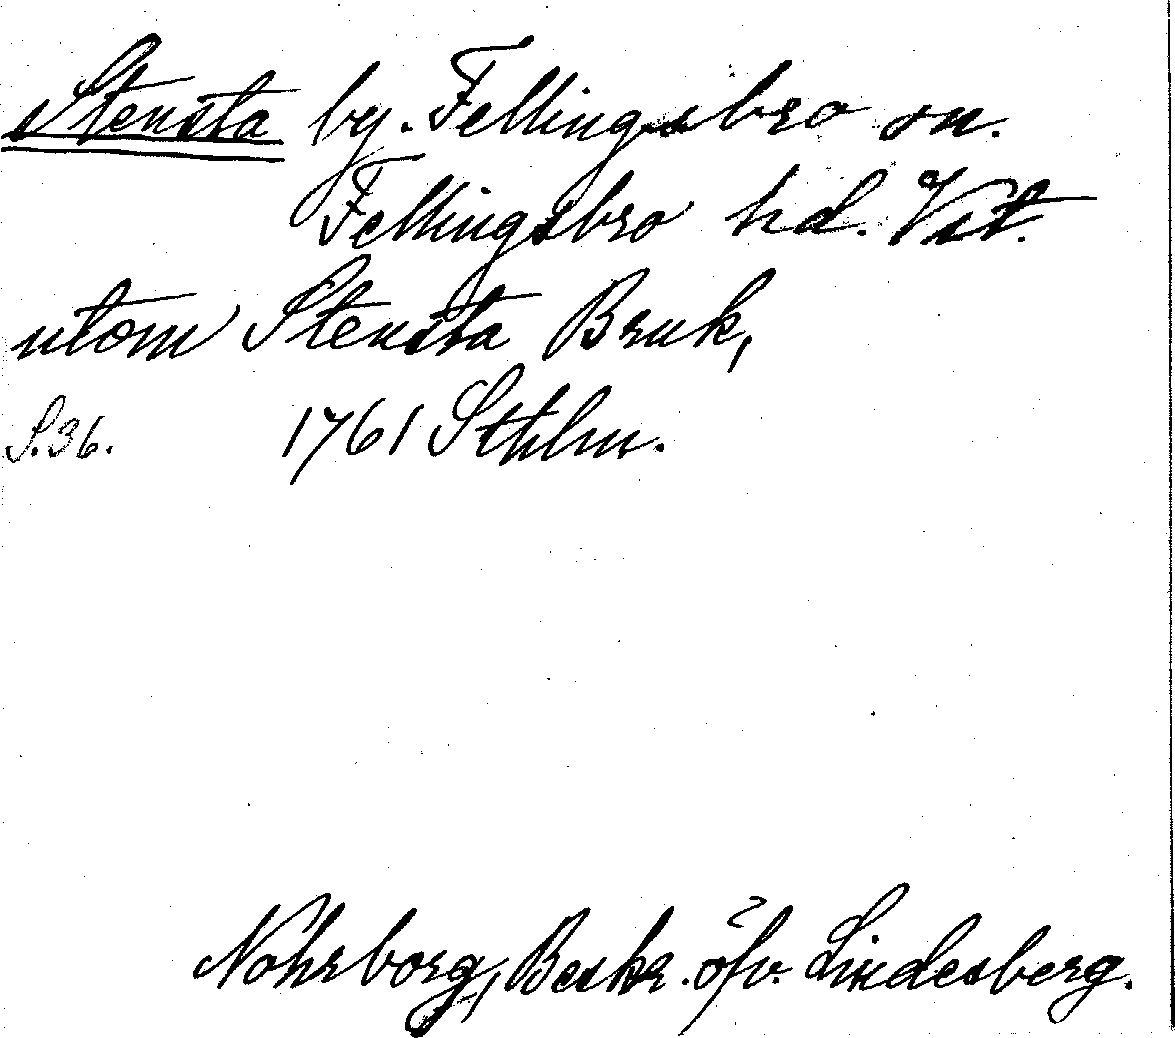 Stensta by. Fellingsbro sn.
Fellingsbro hd. Vst.
utom Stensta Bruk,
S. 36. 1761 Sthlm.
Nohrborg, Beskr. öfv. Lindesberg.